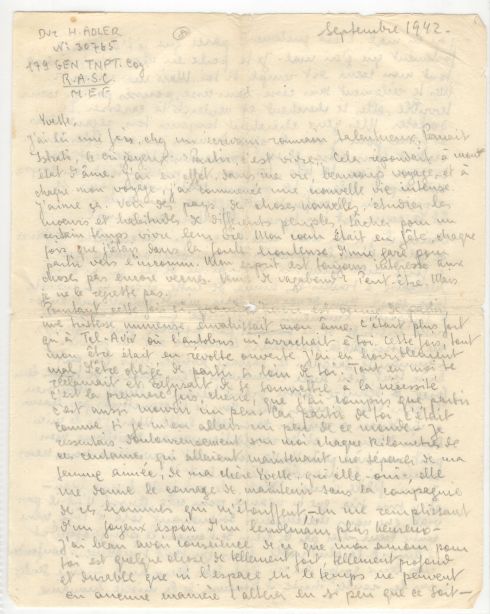 Dvr H. ADLER
N: 30765
179 GEN TNPT. Coy
R.A.S.C.
M.E.F
Septembre 1942.
Yvette,
J'ai lû une fois, chez un écrivain roumain talentueux, Panait
Istrati, le cri joyeux: "Partir, c'est vivre". Cela répondait à mon
état d'âme. J'ai en effet, dans ma vie, beaucoup voyagé, et à
chaque mon voyage, j'ai commencé une nouvelle vie intense.
J'aime ça. Voir des pays, de choses nouvelles, étudier les
mœurs et habitudes de différents peuples, tâcher pour un
certain temps vivre leur vie. Mon cœur était en fête, chaque
fois que j'étais dans la foule d'une gare pour
partir vers l'inconnu. Mon esprit est toujours intéressé aux
choses pas encore vues. Âme de vagabond? Peut-être. Mais
je ne le regrette pas.
Pourtant cette fois est venue de partir,
une tristesse immense envahissait mon âme. C'était plus fort
qu'à Tel-Aviv où l'autobus m'arrachait à toi. Cette fois, tout
mon être était en révolte ouverte. J'ai eu horriblement
mal d'être obligé de partir si loin de toi. Tout en moi te
réclamait et refusait de se soumettre à la nécessité.
C'est la première fois, chérie, que j'ai compris que partir
c'est aussi mourir un peu. Car partir de toi c'était
comme si je m'en allais un peu de ce monde. Je
ressentais douloureusement sur moi chaque kilomètre de
ces centaines qui allaient maintenant me séparer de ma
femme aimée, de ma chère Yvette, qui elle - oui, elle
me donne le courage de maintenir dans la compagnie
de ces hommes qui m'étouffent - en me remplissant
d'un joyeux espoir d'un lendemain plus heureux -
J'ai beau avoir conscience de ce que mon amour pour
toi est quelque chose de tellement fort, tellement profond
et durable que ni l'espace ni le temps ne peuvent
en aucune manière l'altérer en si peu que ce soit -